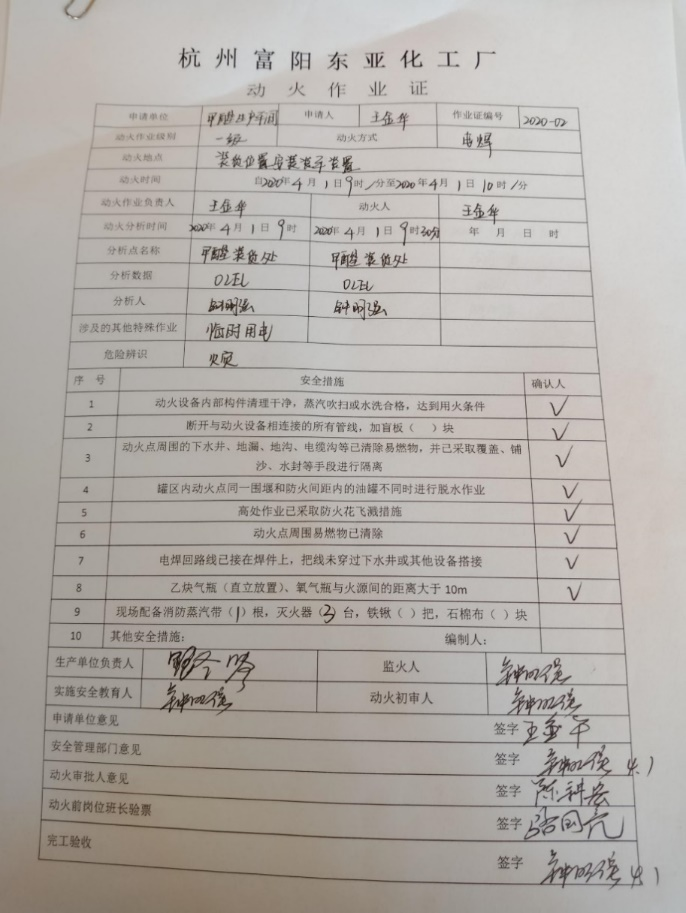 杭州富阳东亚化工厂
动火作业证
申请单位 甲醛生产车间 申请人 王金华 作业证编号 2020-02
动火作业级别 一级 动火方式 电焊
动火地点 装货位置安装装车装置
动火时间 自2020年4月1日9时/分至2020年4月1日10时/分
动火作业负责人 王金华 动火人 王金华
动火分析时间 2020年4月1日9时 2020年4月1日9时30分 年 月 日 时
分析点名称 甲醛装货处 甲醛装货处
分析数据 0LEL 0LEL
分析人 钟明强 钟明强
涉及的其他特殊作业 临时用电
危险辨识 火灾
序号 安全措施 确认人
1 动火设备内部构件清理干净，蒸汽吹扫或水洗合格，达到用火条件 ✓
2 断开与动火设备相连接的所有管线，加盲板（ ）块 ✓
3 动火点周围的下水井、地漏、地沟、电缆沟等已清除易燃物，并已采取覆盖、铺
沙、水封等手段进行隔离 ✓
4 罐区内动火点同一围堰和防火间距内的油罐不同时进行脱水作业 ✓
5 高处作业已采取防火花飞溅措施 ✓
6 动火点周围易燃物已清除 ✓
7 电焊回路线已接在焊件上，把线未穿过下水井或其他设备搭接 ✓
8 乙块气瓶（直立放置）、氧气瓶与火源间的距离大于10m ✓
9 现场配备消防蒸汽带（1）根，灭火器（3）台，铁锹（ ）把，石棉布（ ）块
10 其他安全措施： 编制人：
生产单位负责人 监火人 钟明强
实施安全教育人 钟明强 动火初审人 钟明强
申请单位意见 签字 王金华
安全管理部门意见 签字 钟明强 4.1
动火审批人意见 签字
动火前岗位班长验票 签字 骆国亮
完工验收 签字 钟明强 4.1